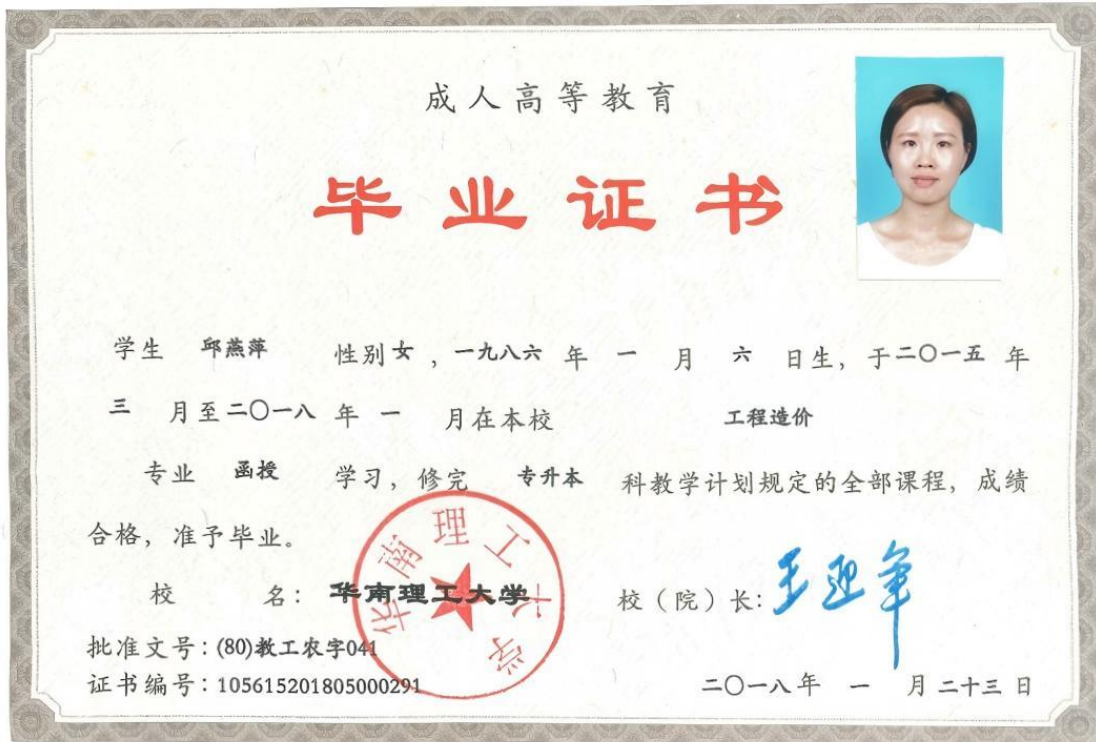 成人高等教育
毕业证书
学生 邱燕萍 性别 女 , 一九八六 年 一 月 六 日生, 于二〇一五 年
三 月至二〇一八 年 一 月在本校 工程造价
专业 函授 学习, 修完 专升本 科教学计划规定的全部课程, 成绩
合格, 准予毕业。
校 名: 华南理工大学 校(院)长: 王迎军
华南理工大学
批准文号: (80)教工农字041
证书编号: 105615201805000291 二〇一八年 一 月二十三日